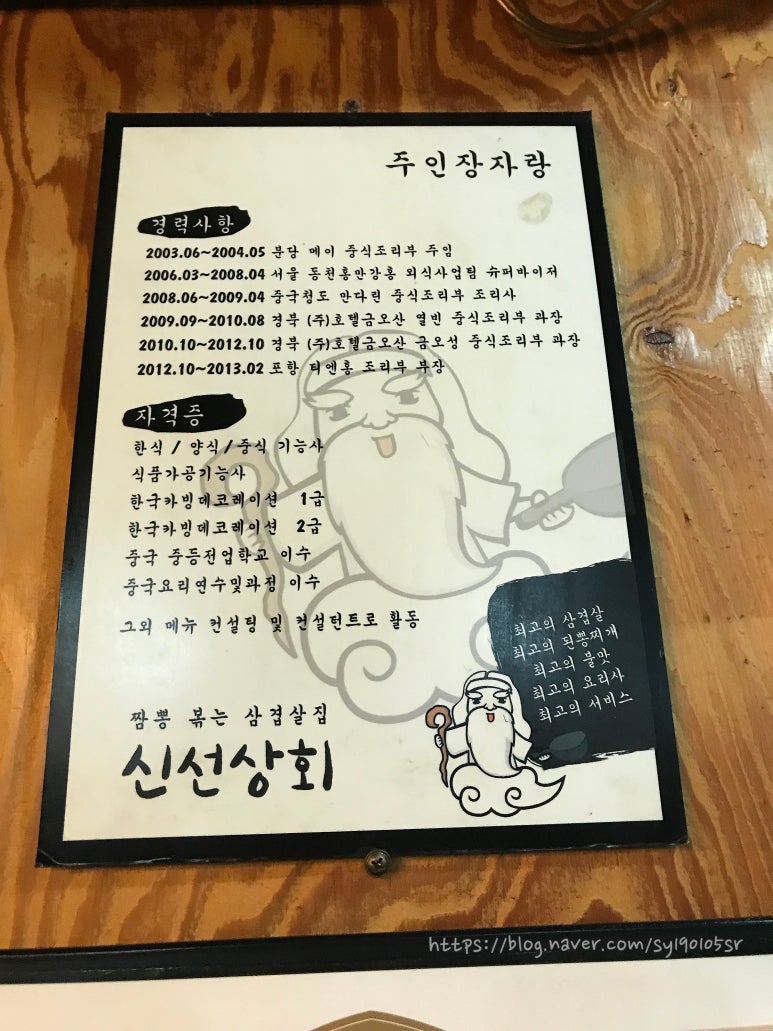 주인장자랑
경력사항
2003.06~2004.05 분당 메이 중식조리부 주임
2006.03~2008.04 서울 동천홍만강홍 외식사업팀 슈퍼바이저
2008.06~2009.04 중국청도 만다린 중식조리부 조리사
2009.09~2010.08 경북 (주)호텔금오산 열빈 중식조리부 과장
2010.10~2012.10 경북 (주)호텔금오산 금오성 중식조리부 과장
2012.10~2013.02 포항 티엔홍 조리부 부장
자격증
한식 / 양식 / 중식 기능사
식품가공기능사
한국카빙데코레이션 1급
한국카빙데코레이션 2급
중국 중등전업학교 이수
중국요리연수및과정 이수
그외 메뉴 컨설팅 및 컨설턴트로 활동
최고의 삼겹살
최고의 된뽕찌개
최고의 불맛
최고의 요리사
최고의 서비스
짬뽕 볶는 삼겹살집
신선상회
https://blog.naver.com/sy190105sr